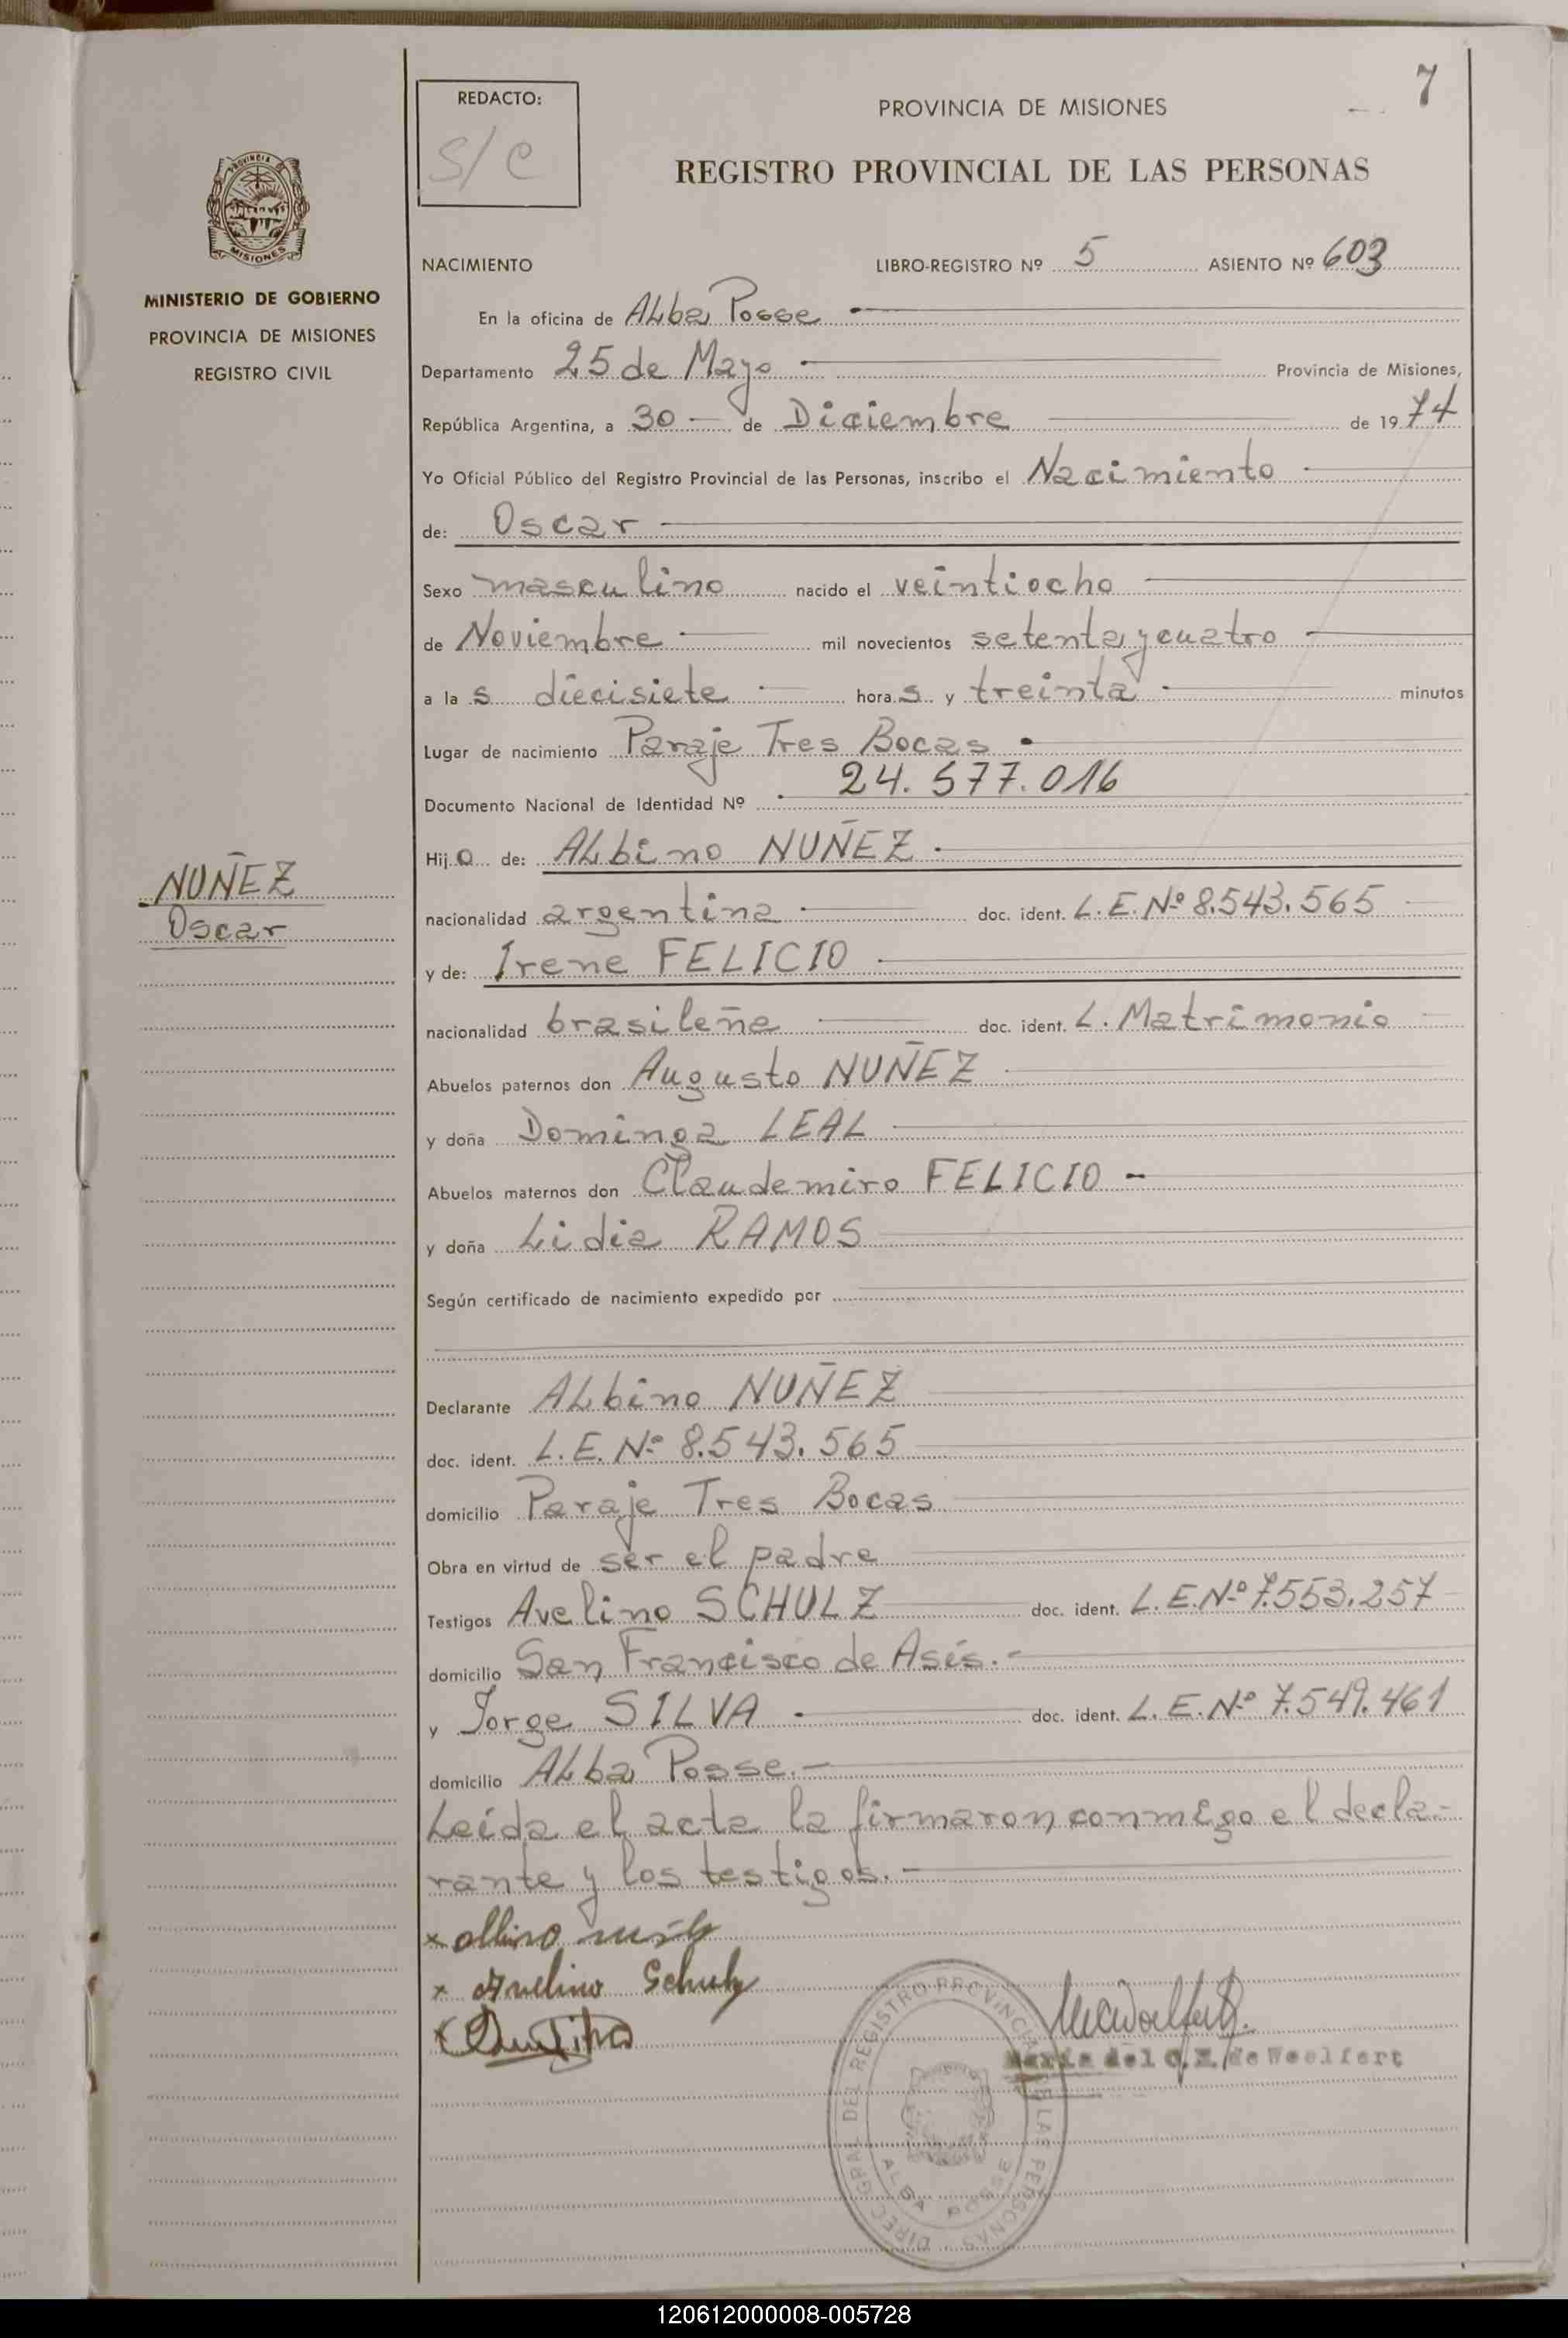 7
REDACTO:
S/C
PROVINCIA DE MISIONES
REGISTRO PROVINCIAL DE LAS PERSONAS
PROVINCIA
MISIONES
MINISTERIO DE GOBIERNO
PROVINCIA DE MISIONES
REGISTRO CIVIL
NUÑEZ
Oscar
NACIMIENTO LIBRO-REGISTRO Nº 5 ASIENTO Nº 603
En la oficina de Alba Posse
Departamento 25 de Mayo Provincia de Misiones,
República Argentina, a 30 de Diciembre de 1974
Yo Oficial Público del Registro Provincial de las Personas, inscribo el Nacimiento
de: Oscar
Sexo masculino nacido el veintiocho
de Noviembre mil novecientos setenta y cuatro
a las diecisiete horas y treinta minutos
Lugar de nacimiento Paraje Tres Bocas
Documento Nacional de Identidad Nº 24.577.016
Hijo de: Albino NUÑEZ
nacionalidad argentina doc. ident. L.E.Nº 8.543.565
y de: Irene FELICIO
nacionalidad brasileña doc. ident. L. Matrimonio
Abuelos paternos don Augusto NUÑEZ
y doña Dominga LEAL
Abuelos maternos don Claudemiro FELICIO
y doña Lidia RAMOS
Según certificado de nacimiento expedido por
Declarante Albino NUÑEZ
doc. ident. L.E.Nº 8.543.565
domicilio Paraje Tres Bocas
Obra en virtud de ser el padre
Testigos Avelino SCHULZ doc. ident. L.E.Nº 7.553.257
domicilio San Francisco de Asís.
y Jorge SILVA doc. ident. L.E.Nº 7.549.461
domicilio Alba Posse.
Leída el acta la firmaron conmigo el decla-
rante y los testigos.
x albino
x Avelino Schulz
x
María del C. de Woelfert
DIREC. GRAL. DEL REGISTRO PROVINCIAL DE LAS PERSONAS
ALBA POSSE
120612000008-005728